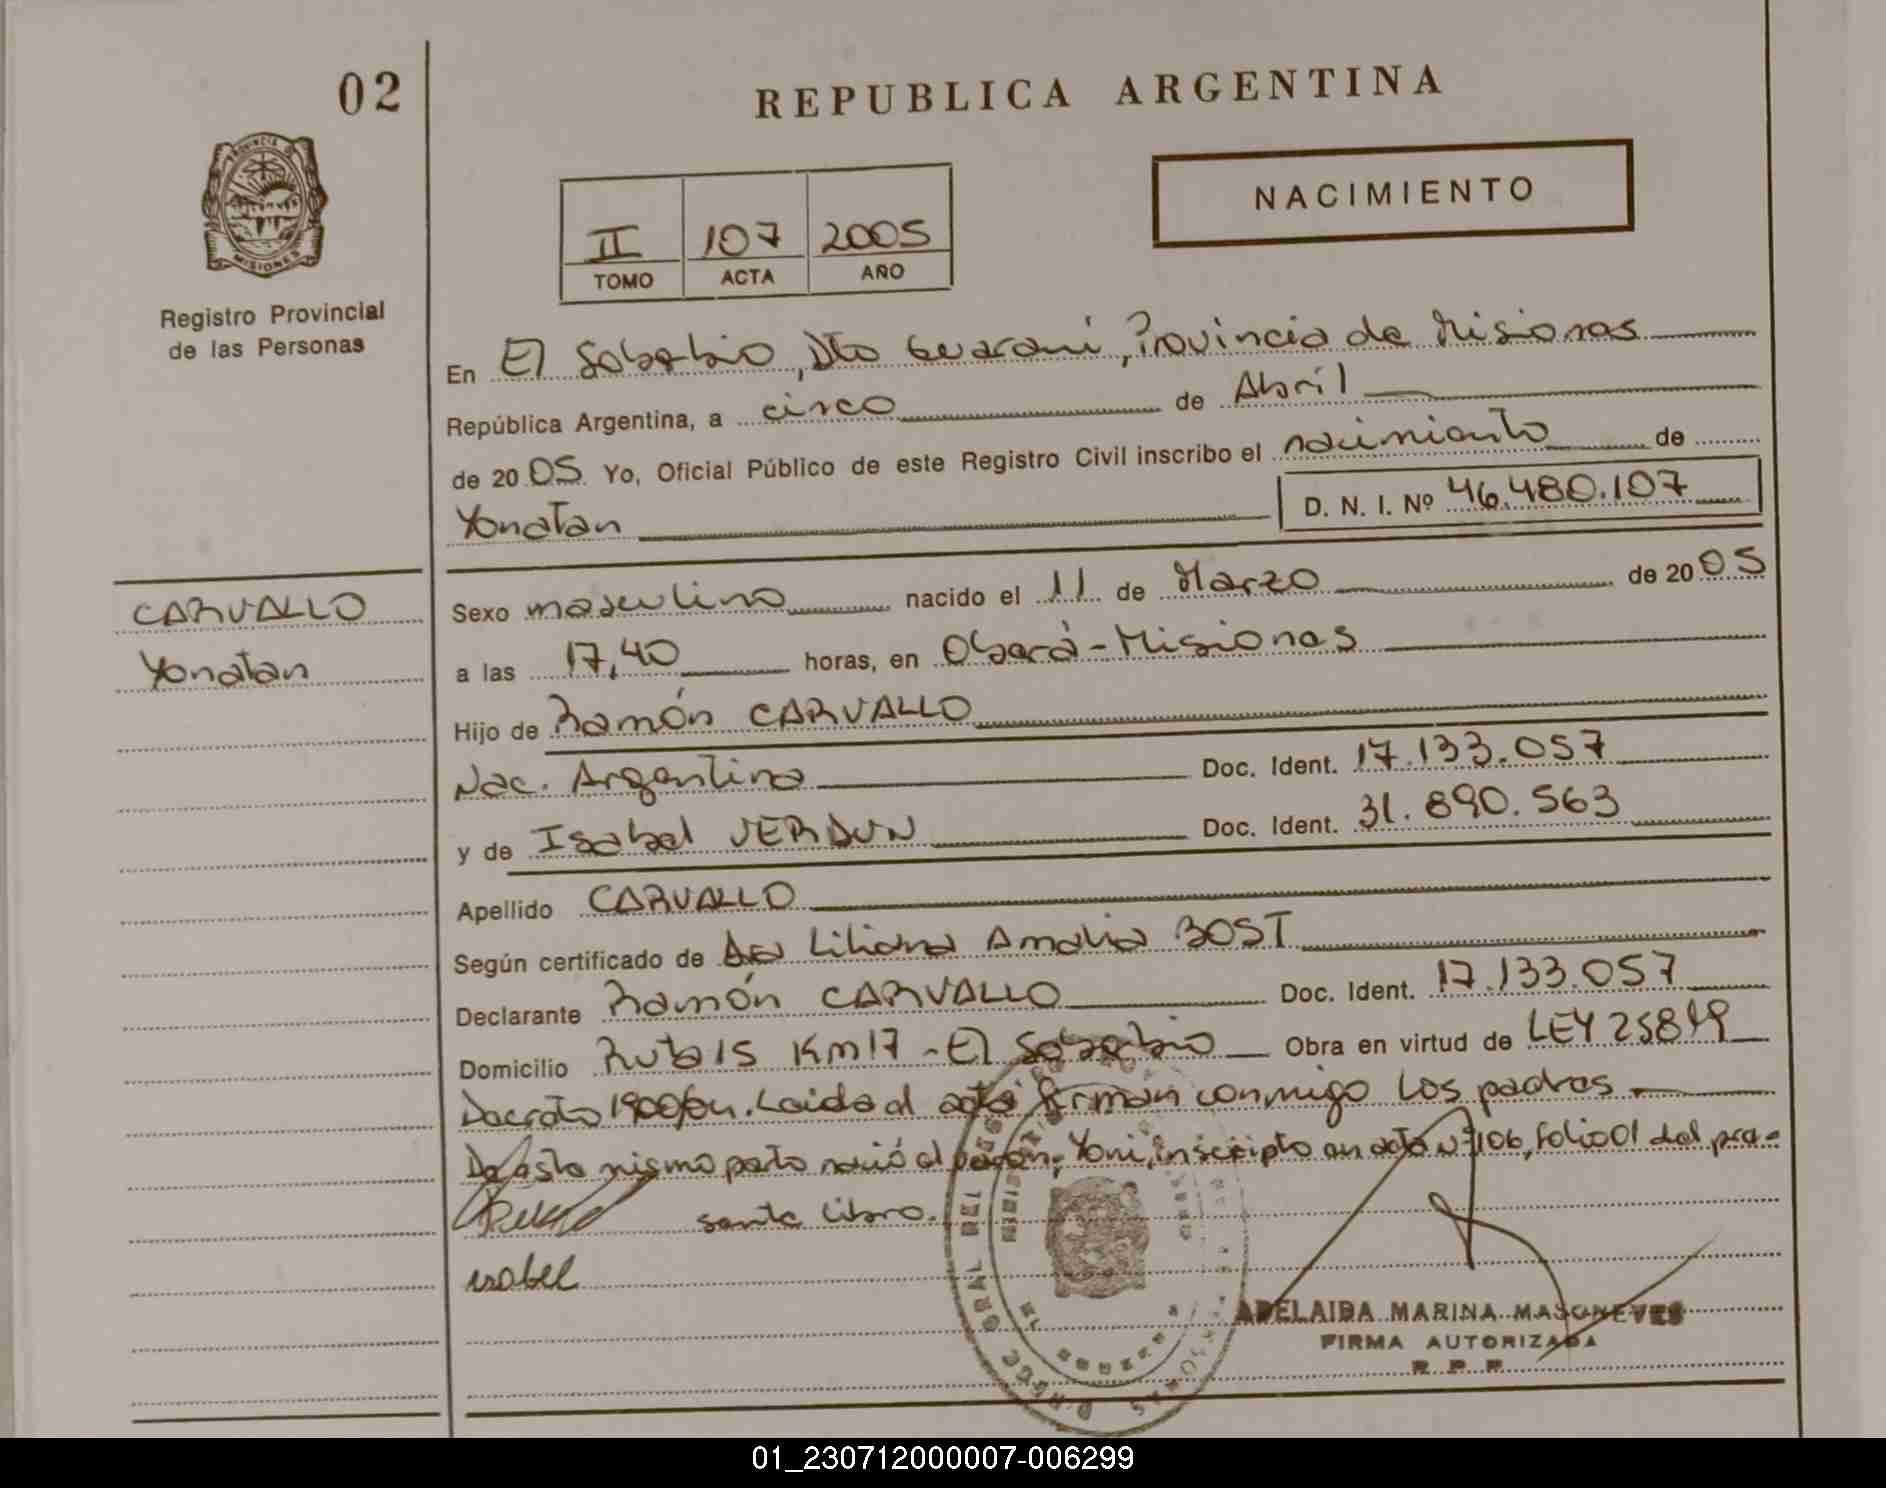 02
REPUBLICA ARGENTINA
PROVINCIA DE
MISIONES
Registro Provincial
de las Personas
NACIMIENTO
II 107 2005
TOMO ACTA AÑO
En El Soberbio, Dto Guaraní, Provincia de Misiones
República Argentina, a cinco de Abril
de 2005 Yo, Oficial Público de este Registro Civil inscribo el nacimiento de
Yonatan D. N. I. Nº 46.480.107
CARVALLO
Yonatan
Sexo masculino nacido el 11 de Marzo de 2005
a las 17,40 horas, en Oberá - Misiones
Hijo de Ramón CARVALLO
Nac. Argentina Doc. Ident. 17.133.057
y de Isabel VERDUN Doc. Ident. 31.890.563
Apellido CARVALLO
Según certificado de Dra Liliana Amalia BOST
Declarante Ramón CARVALLO Doc. Ident. 17.133.057
Domicilio Ruta 15 Km 17 - El Soberbio Obra en virtud de LEY 25819
Decreto 1900/04. Leida el acta firman conmigo los padres.
De este mismo parto nació el varón, Yoni, inscripto en acta Nº 106, folio 01 del pre-
sente libro.
isabel
ADELAIDA MARINA MASGNEVES
FIRMA AUTORIZADA
R P P
01_230712000007-006299